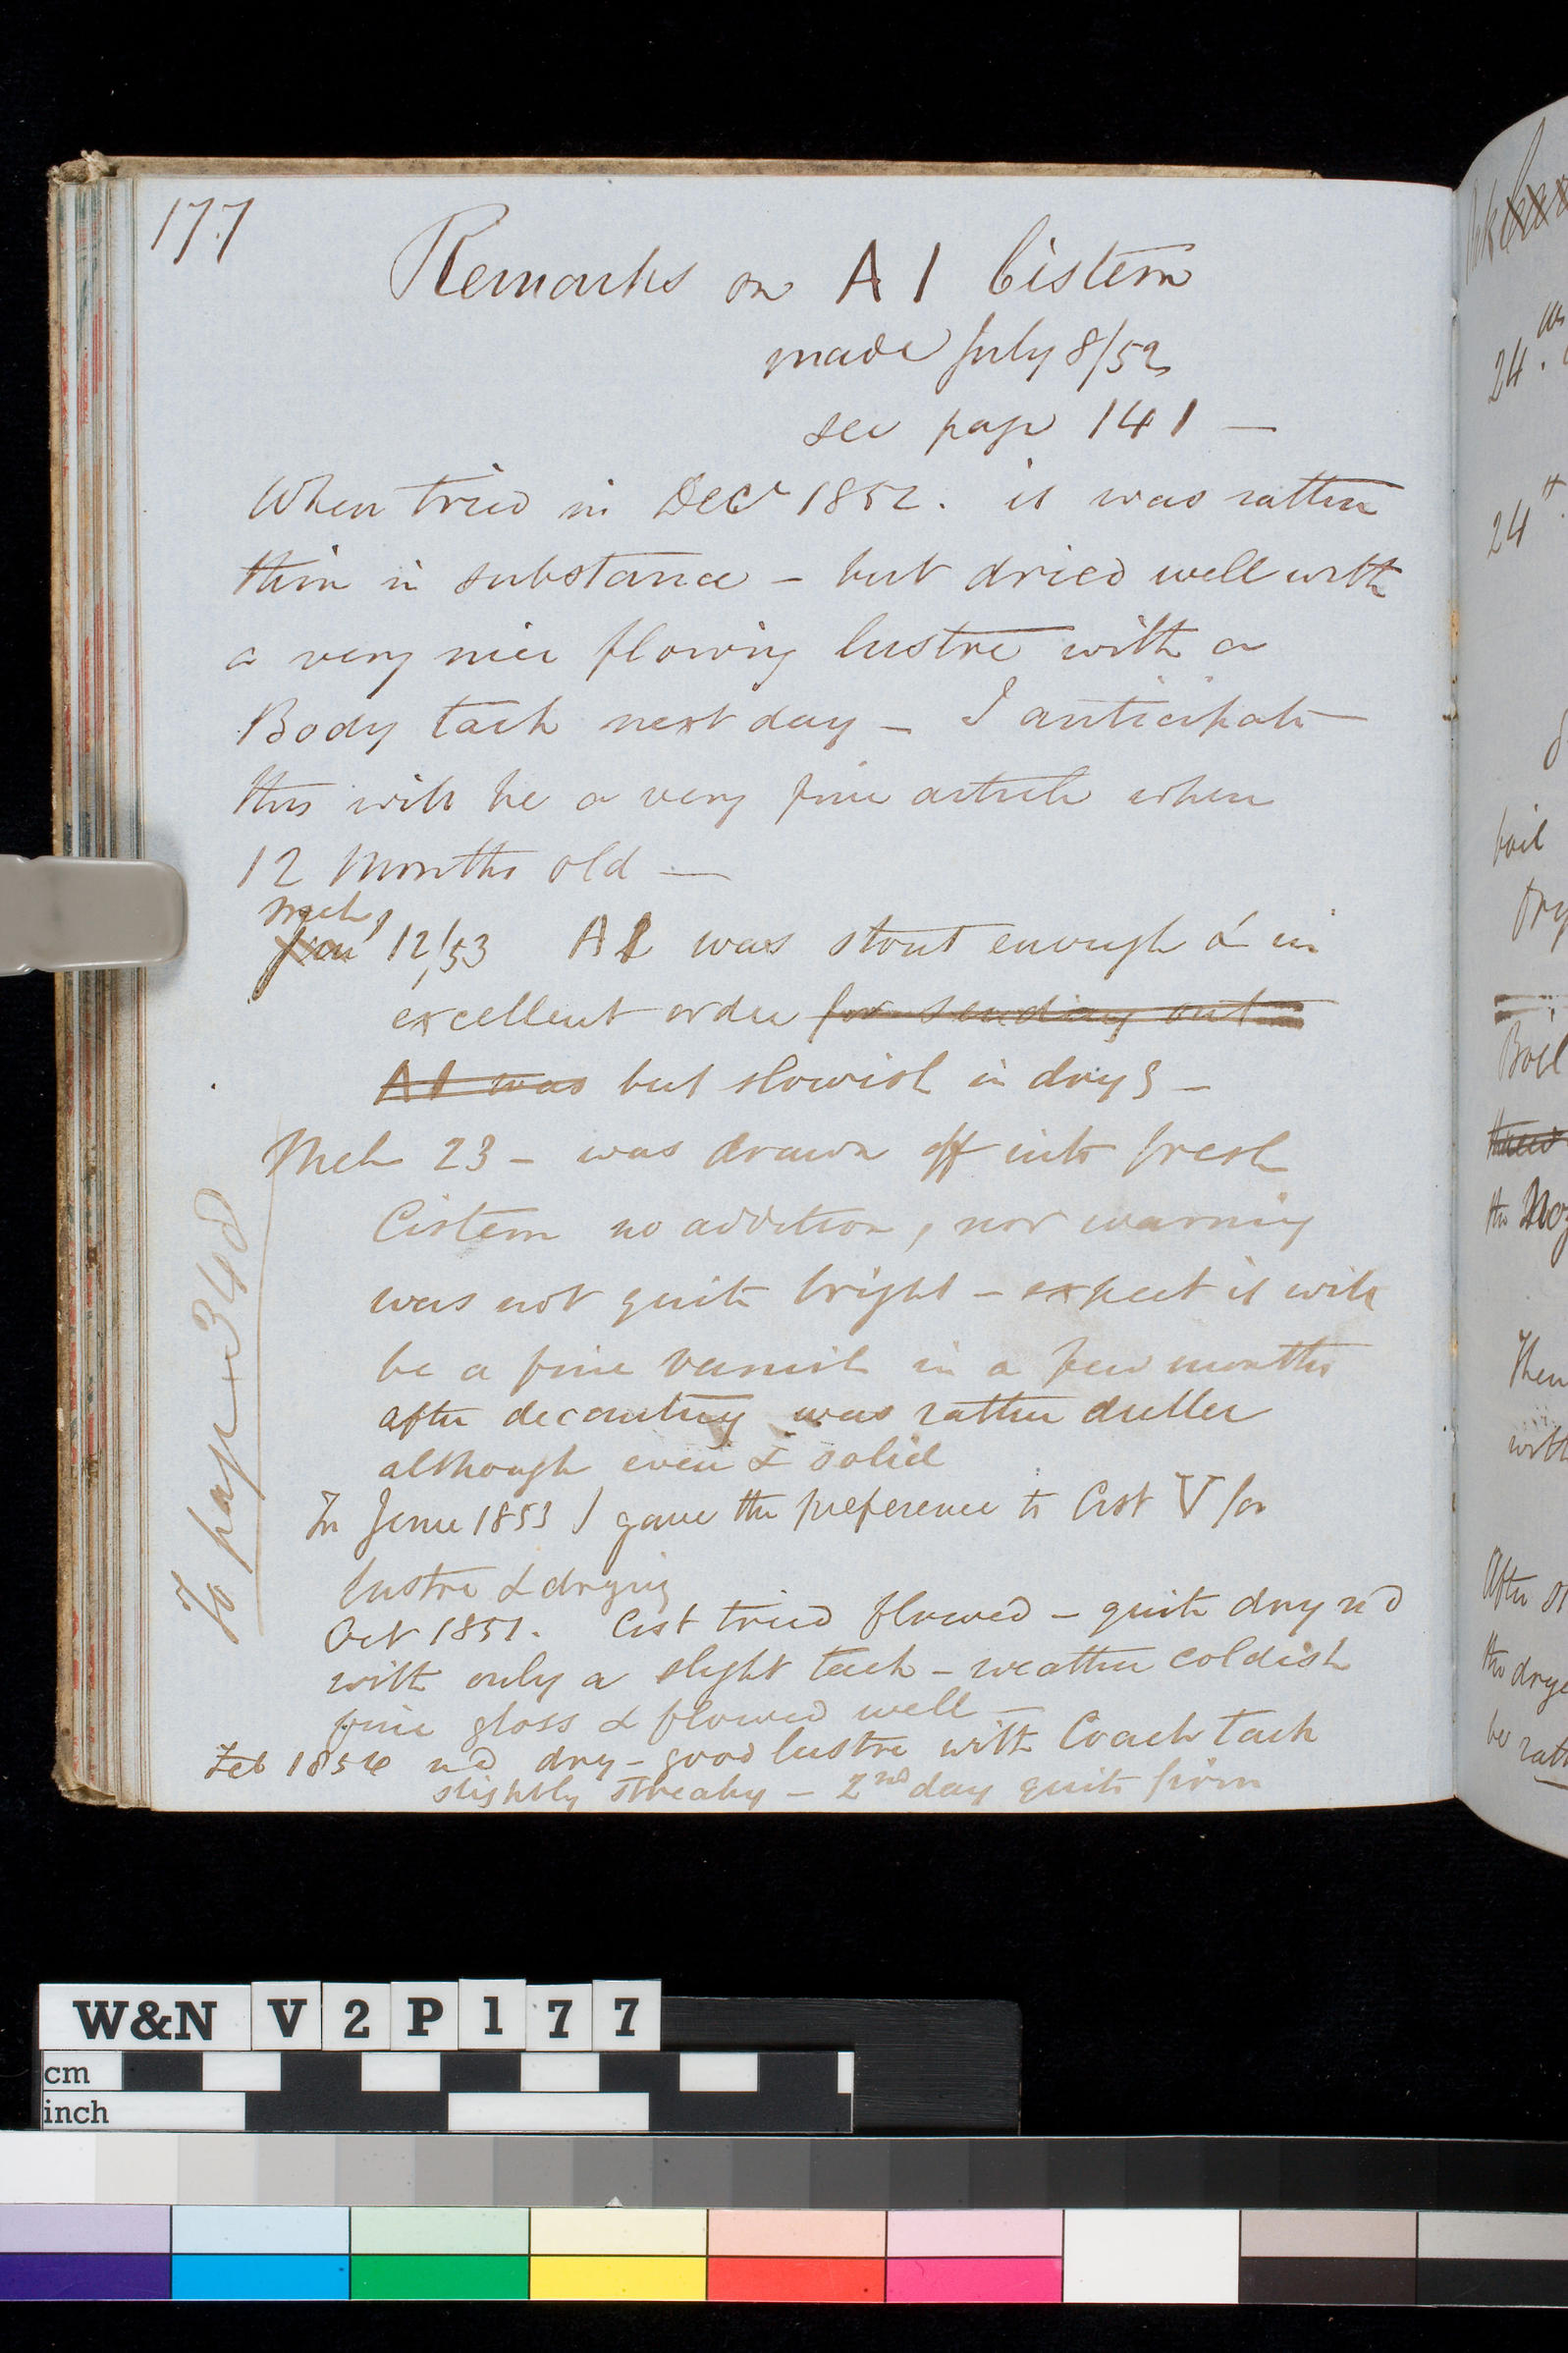 177
Remarks on A 1 Cistern
made July 8/52
see page 141 —
When tried in Decr 1852. it was rather
thin in substance – but dried well with
a very nice flowing lustre with a
Body tack next day – I anticipate
this will be a very fine article when
12 Months old —
Mch
Jan 12/53 A1 was stout enough & in
excellent order for sending out
A1 was but slowish in dryg –
Mch 23 – was drawn off into fresh
Cistern no addition, nor warming
was not quite bright – expect it will
be a fine varnish in a few months
after decanting was rather duller
although even & solid
In June 1853 I gave the preference to Cist V for
lustre & drying
Oct 1851. Cist tried flowed – quite dry nd
with only a slight tack – weather coldish
fine gloss & flowed well –
Feb 1854 nd dry – good lustre with Coach tack
slightly streaky – 2nd day quite firm
To page 340
24
24
boil
dry
Boil
the
Then
with
After
the drye
be
W&N V 2 P 1 7 7
cm
inch